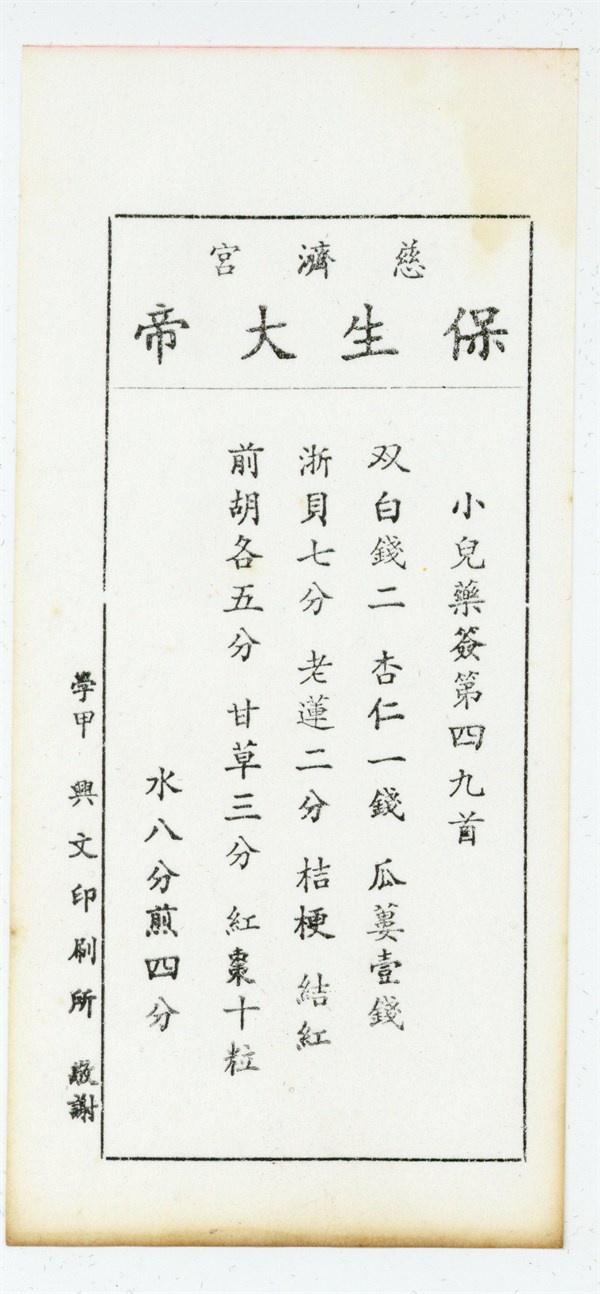 慈濟宮
保生大帝
小兒藥簽第四九首
双白錢二 杏仁一錢 瓜蔞壹錢
浙貝七分 老蓮二分 桔梗 結紅
前胡各五分 甘草三分 紅棗十粒
水八分煎四分
學甲 興文印刷所 敬謝